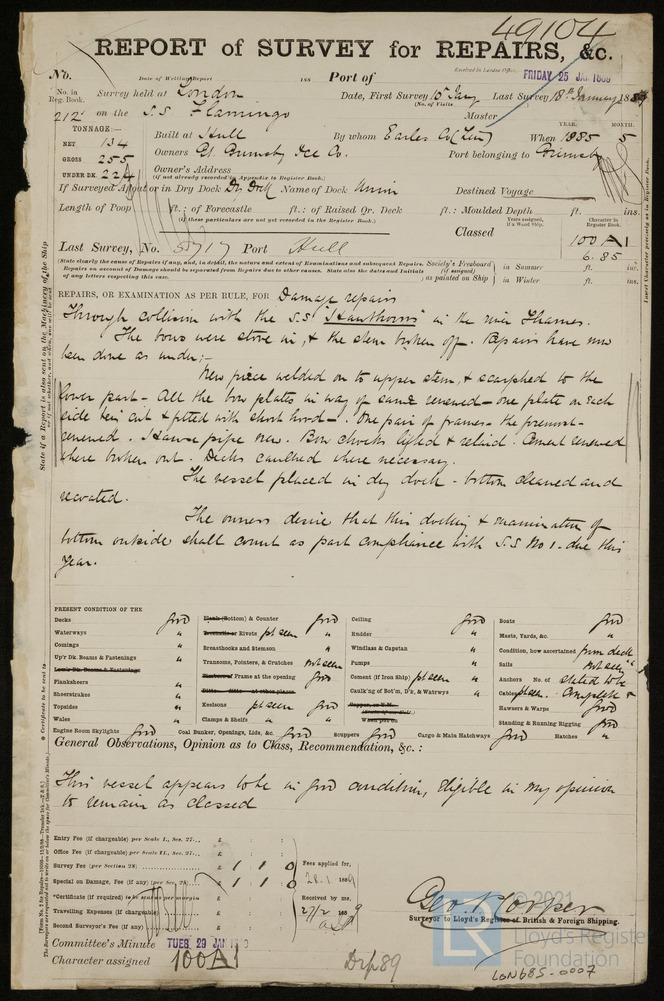 49104
REPORT of SURVEY for REPAIRS, &c.
No. Date of Writing Report 188 Port of Received in London Office, FRIDAY 25 JAN 1889
No. in Reg. Book. Survey held at London Date, First Survey 10th Jany Last Survey 18th January 1889
(No. of Visits)
212 on the S.S. Flamingo Master
TONNAGE:— Built at Hull By whom Earles Co (Lim) When 1885 5
YEAR. MONTH.
NET 134
GROSS 255 Owners Gt. Grimsby Ice Co. Port belonging to Grimsby
UNDER DK. 224 Owner's Address
(if not already recorded in Appendix to Register Book.)
If Surveyed Afloat or in Dry Dock Dry Dock Name of Dock Union Destined Voyage
Length of Poop ft.: of Forecastle ft.: of Raised Qr. Deck ft.: Moulded Depth ft. ins.
(if these particulars are not yet recorded in the Register Book.)
Years assigned, if a Wood Ship. Character in Register Book.
Classed 100 A1
6.85
Last Survey, No. 5717 Port Hull
(State clearly the cause of Repairs if any, and, in detail, the nature and extent of Examinations and subsequent Repairs.
Repairs on account of Damage should be separated from Repairs due to other causes. State also the dates and Initials
of any letters respecting this case.
Society's Freeboard (if assigned) as painted on Ship
in Summer ft. ins.
in Winter ft. ins.
REPAIRS, OR EXAMINATION AS PER RULE, FOR Damage repairs
Through collision with the S.S "Hawthorns" in the river Thames.
The bows were stove in, & the stem broken off. Repairs have now
been done as under;-
New piece welded on to upper stem, & scarphed to the
lower part - All the bow plates in way of same renewed - one plate on each
side being cut & fitted with short hood -. One pair of frames - the foremost -
renewed. Hawse pipe new. Bow chocks lifted & relaid. Cement renewed
where broken out. Decks caulked where necessary.
The vessel placed in dry dock - bottom cleaned and
recoated.
The owners desire that this docking & examination of
bottom outside shall count as part compliance with S.S No 1 - due this
year.
PRESENT CONDITION OF THE
Decks good
Waterways "
Comings "
Up'r Dk. Beams & Fastenings "
Low'r Dk. Beams & Fastenings
Planksheers "
Sheerstrakes "
Topsides "
Wales "
Engine Room Skylights good
Plank (Bottom) & Counter good
Treenails or Rivots pt seen "
Breasthooks and Stemson "
Transoms, Pointers, & Crutches not seen
Timbers or Frame at the opening good
Ditto. Ditto at other places.
Keelsons pt seen good
Clamps & Shelfs "
Coal Bunker, Openings, Lids, &c. good
Ceiling good
Rudder "
Windlass & Capstan "
Pumps "
Cement (if Iron Ship) pt seen "
Caulk'ng of Bot'm, D'k, & Watrwys "
When put on
Scuppers good
Cargo & Main Hatchways good
Boats good
Masts, Yards, &c. "
Condition, how ascertained from deck
Sails not seen
Anchors No. of stated to be
Cables pt seen. Complete &
Hawsers & Warps good
Standing & Running Rigging good
Hatches "
General Observations, Opinion as to Class, Recommendation, &c.:
This vessel appears to be in good condition, eligible in my opinion
to remain as classed
Entry Fee (if chargeable) per Scale I., Sec. 27... £ : :
Office Fee (if chargeable) per Scale II., Sec. 27... £ : :
Survey Fee (per Section 28) £ 1 : 1 : 0 Fees applied for,
Special on Damage, Fee (if any) (per Sec. 28) £ 1 : 1 : 0 28.1 1889
*Certificate (if required) to be sent as per margin Received by me,
Travelling Expenses (if chargeable) £ 27/2 1889
Second Surveyor's Fee (if any) £
Geo. P. Cooper
Surveyor to Lloyd's Register of British & Foreign Shipping.
Committee's Minute TUES 29 JAN 1889
Character assigned 100A1
LON685-0007
© 2021
Lloyd's Register
Foundation
State if a Report is also sent on the Machinery of the Ship